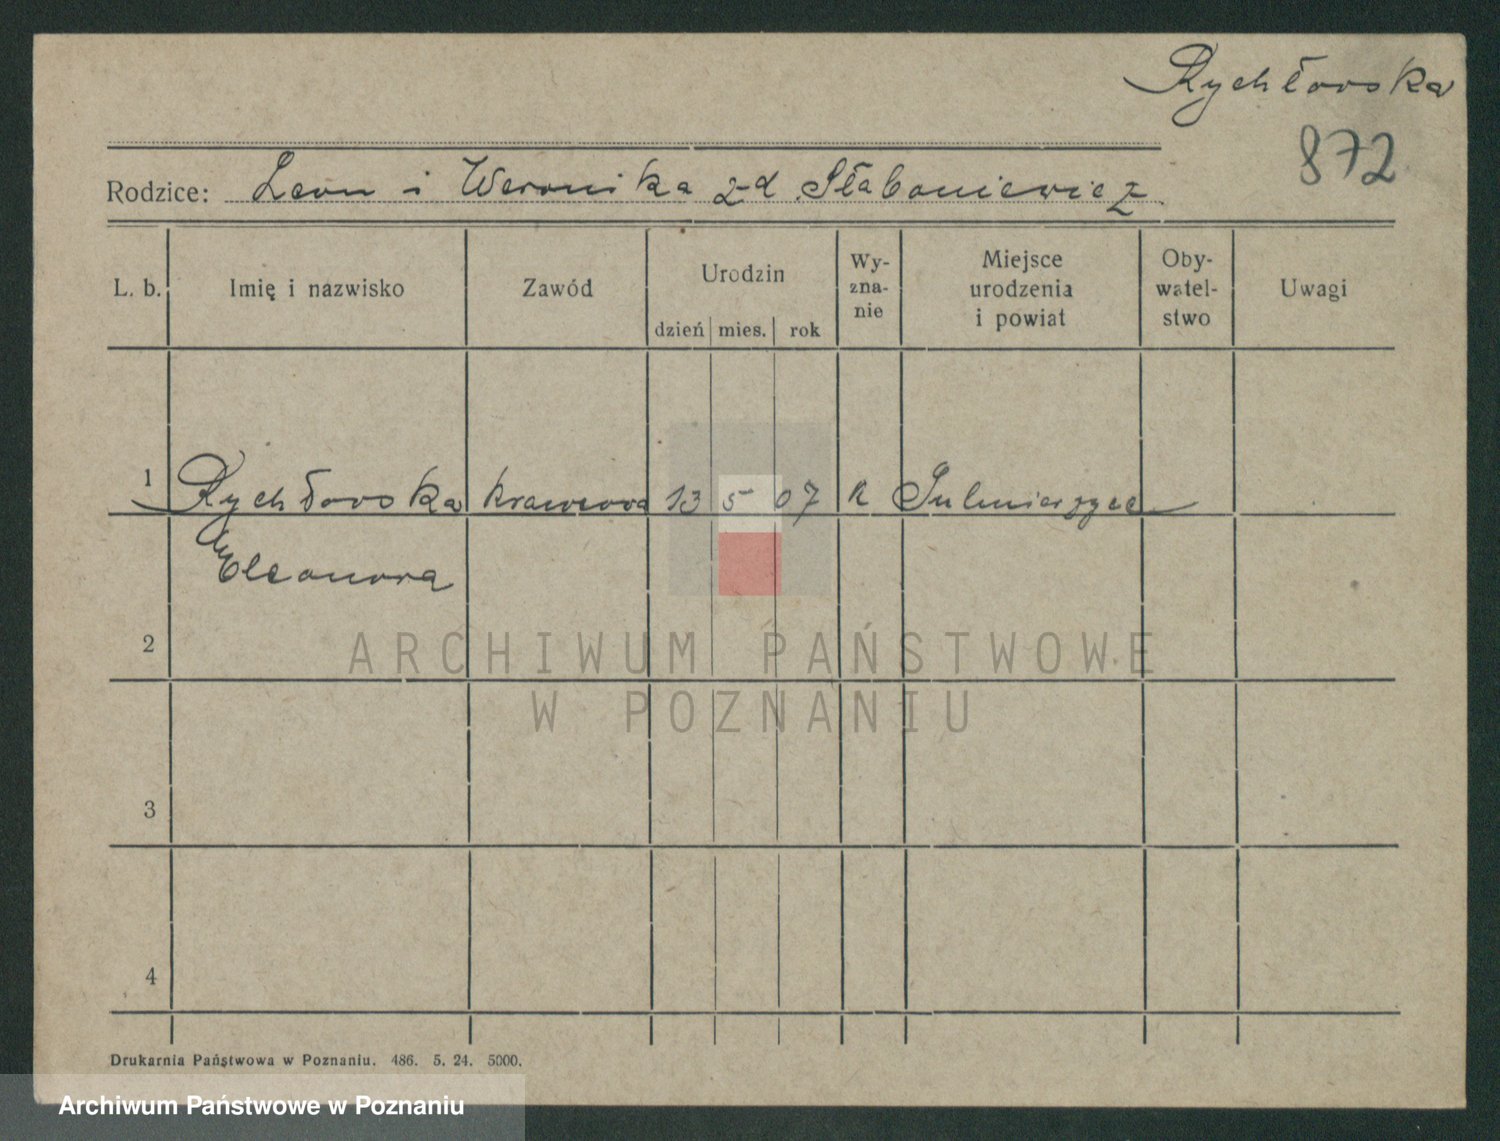 Rychłowska
872
Rodzice: Leon i Weronika z d. Słaboniewicz
L. b. Imię i nazwisko Zawód Urodzin dzień mies. rok Wy-zna-nie Miejsce urodzenia i powiat Oby-watel-stwo Uwagi
1 Rychłowska krawcowa 13 5 07 k Sulmierzyce
Eleonora
2
ARCHIWUM PAŃSTWOWE
W POZNANIU
3
4
Drukarnia Państwowa w Poznaniu. 486. 5. 24. 5000.
Archiwum Państwowe w Poznaniu